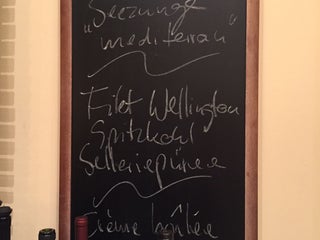 Seezunge
„mediterran“
Filet Wellington
Spitzkohl
Selleriepüree
Crème brûlée